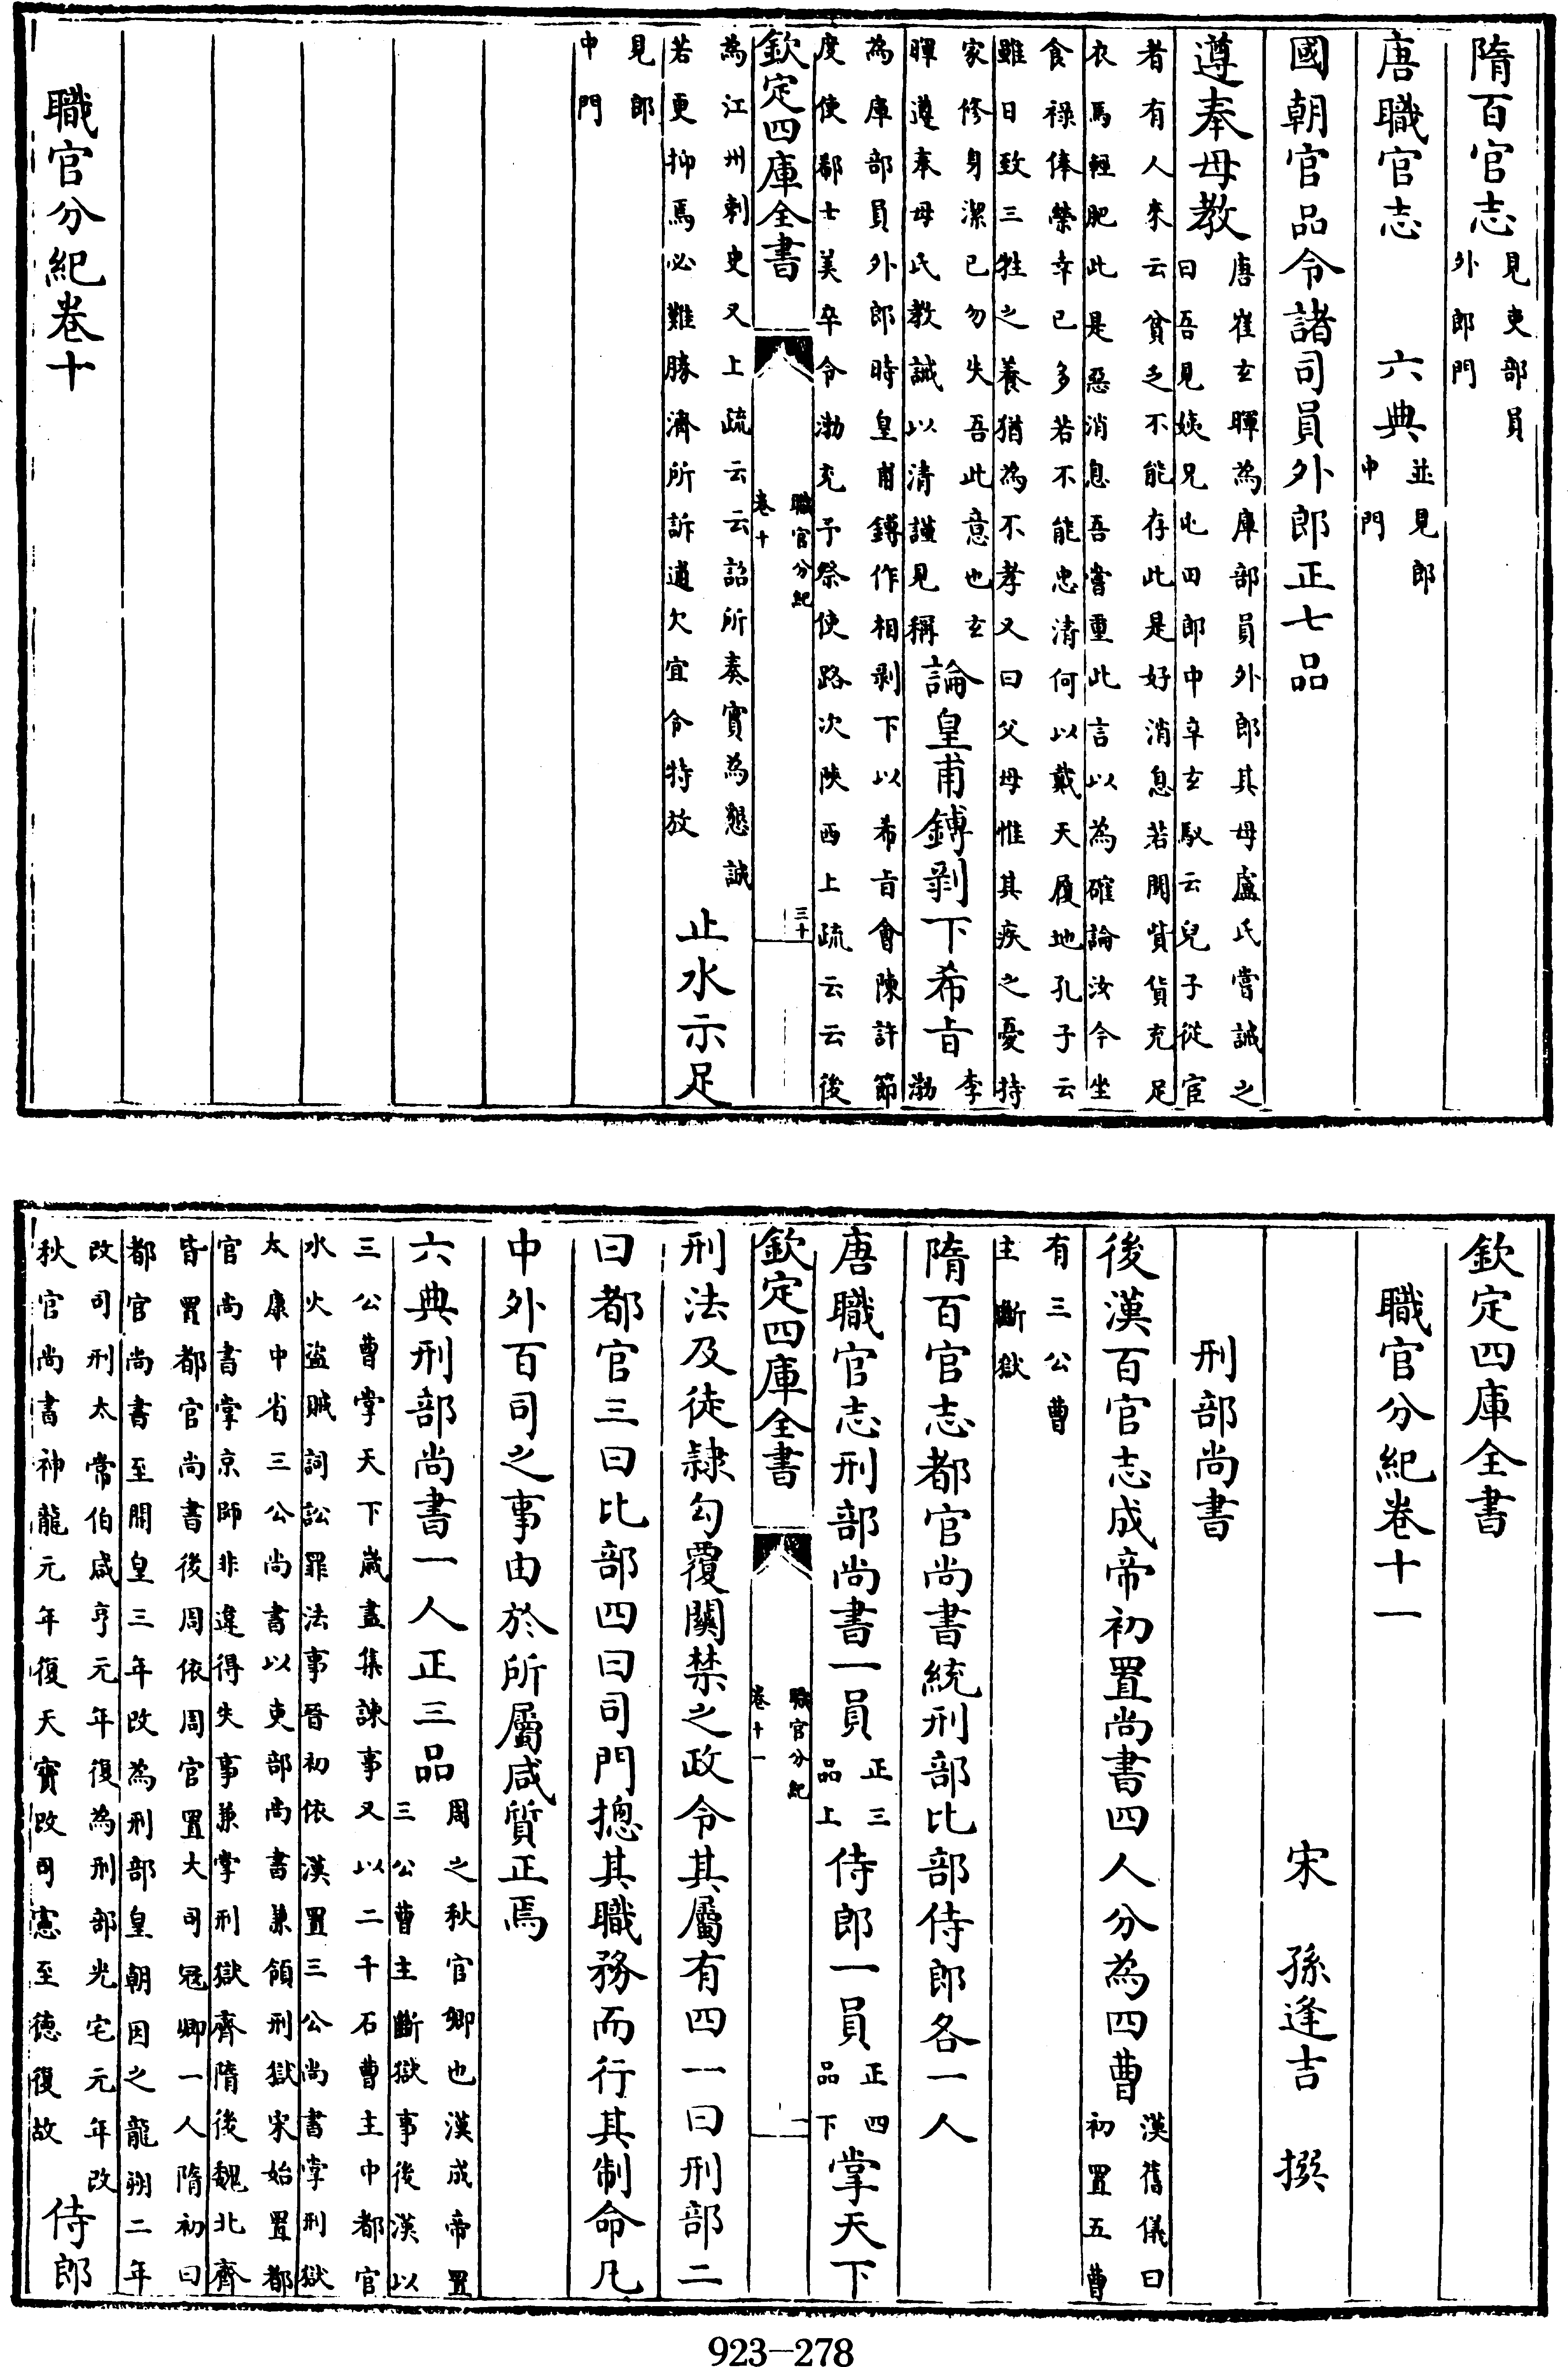 隋百官志見吏部員外郎門
唐職官志　六典並見郎中門
國朝官品令諸司員外郎正七品
遵奉母教唐崔玄暉為庫部員外郎其母盧氏嘗誡之曰吾見姨兄屯田郎中辛玄馭云兒子從宦
者有人來云貧乏不能存此是好消息若聞貲貨充足衣馬輕肥此是惡消息吾嘗重此言以為確論汝今坐
食祿俸榮幸已多若不能忠清何以戴天履地孔子云雖日致三牲之養猶為不孝又曰父母惟其疾之憂特
家修身潔己勿失吾此意也玄暉遵奉母氏教誡以清謹見稱論皇甫鎛剥下希㫖李渤
為庫部員外郎時皇甫鎛作相剥下以希㫖會陳許節度使郗士美卒令渤充予祭使路次陜西上疏云云後
欽定四庫全書
職官分紀
卷十
三十
為江州刺史又上疏云云詔所奏實為懇誠若更抑焉必難勝濟所訴逋欠宜令特放止水示足
見郎中門
職官分紀卷十
欽定四庫全書
職官分紀卷十一
宋　孫逢吉　撰
刑部尚書
後漢百官志成帝初置尚書四人分為四曹漢舊儀曰初置五曹
有三公曹主斷獄
隋百官志都官尚書統刑部比部侍郎各一人
唐職官志刑部尚書一員正三品上侍郎一員正四品下掌天下
欽定四庫全書
職官分紀
卷十一
一
刑法及徒隸勾覆關禁之政令其屬有四一曰刑部二
曰都官三曰比部四曰司門摠其職務而行其制命凡
中外百司之事由於所屬咸質正焉
六典刑部尚書一人正三品周之秋官卿也漢成帝置三公曹主斷獄事後漢以
三公曹掌天下歲盡集課事又以二千石曹主中都官水火盜賊詞訟罪法事晉初依漢置三公尚書掌刑獄
太康中省三公尚書以吏部尚書兼領刑獄宋始置都官尚書掌京師非違得失事兼掌刑獄齊隋後魏北齊
皆置都官尚書後周依周官置大司冦卿一人隋初曰都官尚書至開皇三年改為刑部皇朝因之龍朔二年
改司刑太常伯咸亨元年復為刑部光宅元年改秋官尚書神龍元年復天寶改司憲至德復故侍郎
923—278